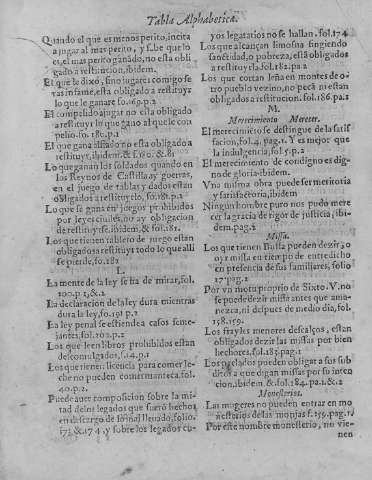 Tabla Alphabetica.
Quando el que es menos perito, incita
a jugar al mas perito, y sabe que lo
es, el mas perito ganádo, no esta obli
gado a restitucion, ibidem.
El que le dixo, sino jugares comigo se
ras infame, esta obligado a restituyr
lo que le ganare fo. 169. p. 2
El compelido a jugar no está obligado
a restituyr lo que gano al que le com
pelio. fo. 180. p. 1
El que gana al fiado no esta obligado a
restituyr, ibidem. & f. 190. & 81
Lo que ganan los soldados quando en
los Reynos de Castilla, ay guerras,
en el juego de tablas y dados están
obligados a restituyrlo, fo. 181. p. 1
Lo que se gana en juegos prohibidos
por leyes ciuiles, no ay obligacion
de restituyrse. ibidem, & fol. 181.
Los que tienen tablero de juego estan
obligados a restituyr todo lo que alli
se pierde, fo. 182
L.
La mente de la ley se ha de mirar, fol.
100. p. 1, & 2
La declaracion de la ley dura mientras
dura la ley, fo. 191 p. 1
La ley penal se estiende a casos seme-
jantes, fol. 102. p. 2
Los que leen libros prohibidos estan
descomulgados, f. 14. p. 1
Los que tienen licencia para comer le-
che no pueden comer manteca. fol.
40. p. 2
Puede auer composicion sobre la mi-
tad de los legados que fueron hechos
en descargo de lo mal lleuado, folio.
173 & 174, y sobre los legados cu-
yos legatarios no se hallan. fol. 174
Los que alcançan limosna fingiendo
sanctidad, o pobreza, está obligados
a restituyrla. fol. 182. pa. 2
Los que cortan leña en montes de o-
tro pueblo vezino, no pecá ni estan
obligados a restitucion. fol. 186. pa. 1
M.
Merecimiento Merecer.
El merecimiéto se distingue de la satis
faccion, fol. 4. pag. 1. Y es mejor que
la indulgencia, fol. 5. p. 2
El merecimiento de condigno es dig-
no de gloria ibidem.
Vna misma obra puede ser meritoria
y satisfactoria, ibidem
Ningun hombre puro nos pudo mere
cer la gracia de rigor de justicia, ibi-
dem. pag. 1
Missa.
Los que tienen Bulla pueden dezir, o
oyr missa en tiempo de entredicho
en presencia de sus familiares, folio
17 pag. 1
Por vn motu proprio de Sixto. V. no
se puede dezir missa antes que ama-
nezca, ni despues de medio dia, fol.
158. 159.
Los frayles menores descalços, estan
obligados dezir las missas por bien
hechores. fol. 183. pag. 1
Los prelados pueden obligar a sus sub
ditos a que digan missas por su inten
cion. ibidem. & fol. 184. pa. 1. & 2
Monesterios.
Las mugeres no pueden entrar en mo
nesterios de las monjas f. 159. pag. 1,
Por este nombre monesterio, no vie
nen